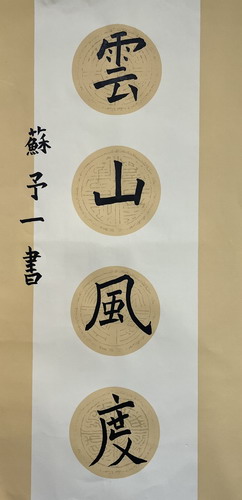 雲山風度
蘇予一書